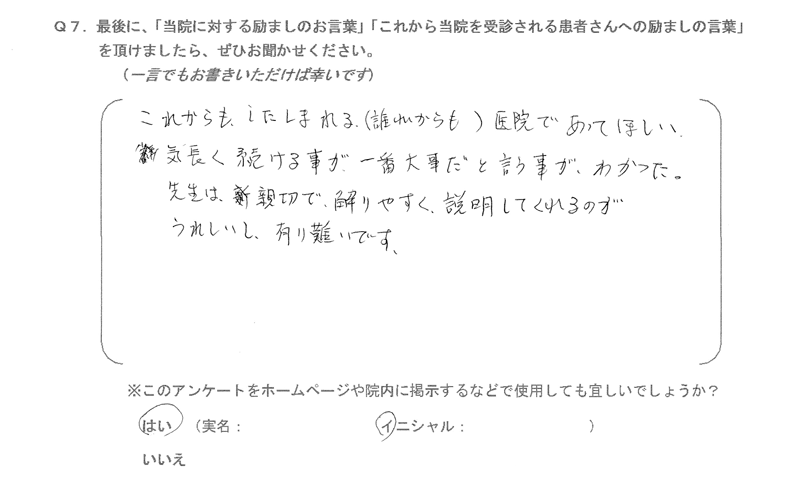 Q7. 最後に、「当院に対する励ましのお言葉」「これから当院を受診される患者さんへの励ましの言葉」
を頂けましたら、ぜひお聞かせください。
（一言でもお書きいただけば幸いです）
これからも、したしまれる、(誰れからも ) 医院であってほしい、
気長く続ける事が、一番大事だと言う事が、わかった。
先生は、親切で、解りやすく、説明してくれるのが
うれしいし、有り難いです、
※このアンケートをホームページや院内に掲示するなどで使用しても宜しいでしょうか？
はい （実名： イニシャル： ）
いいえ